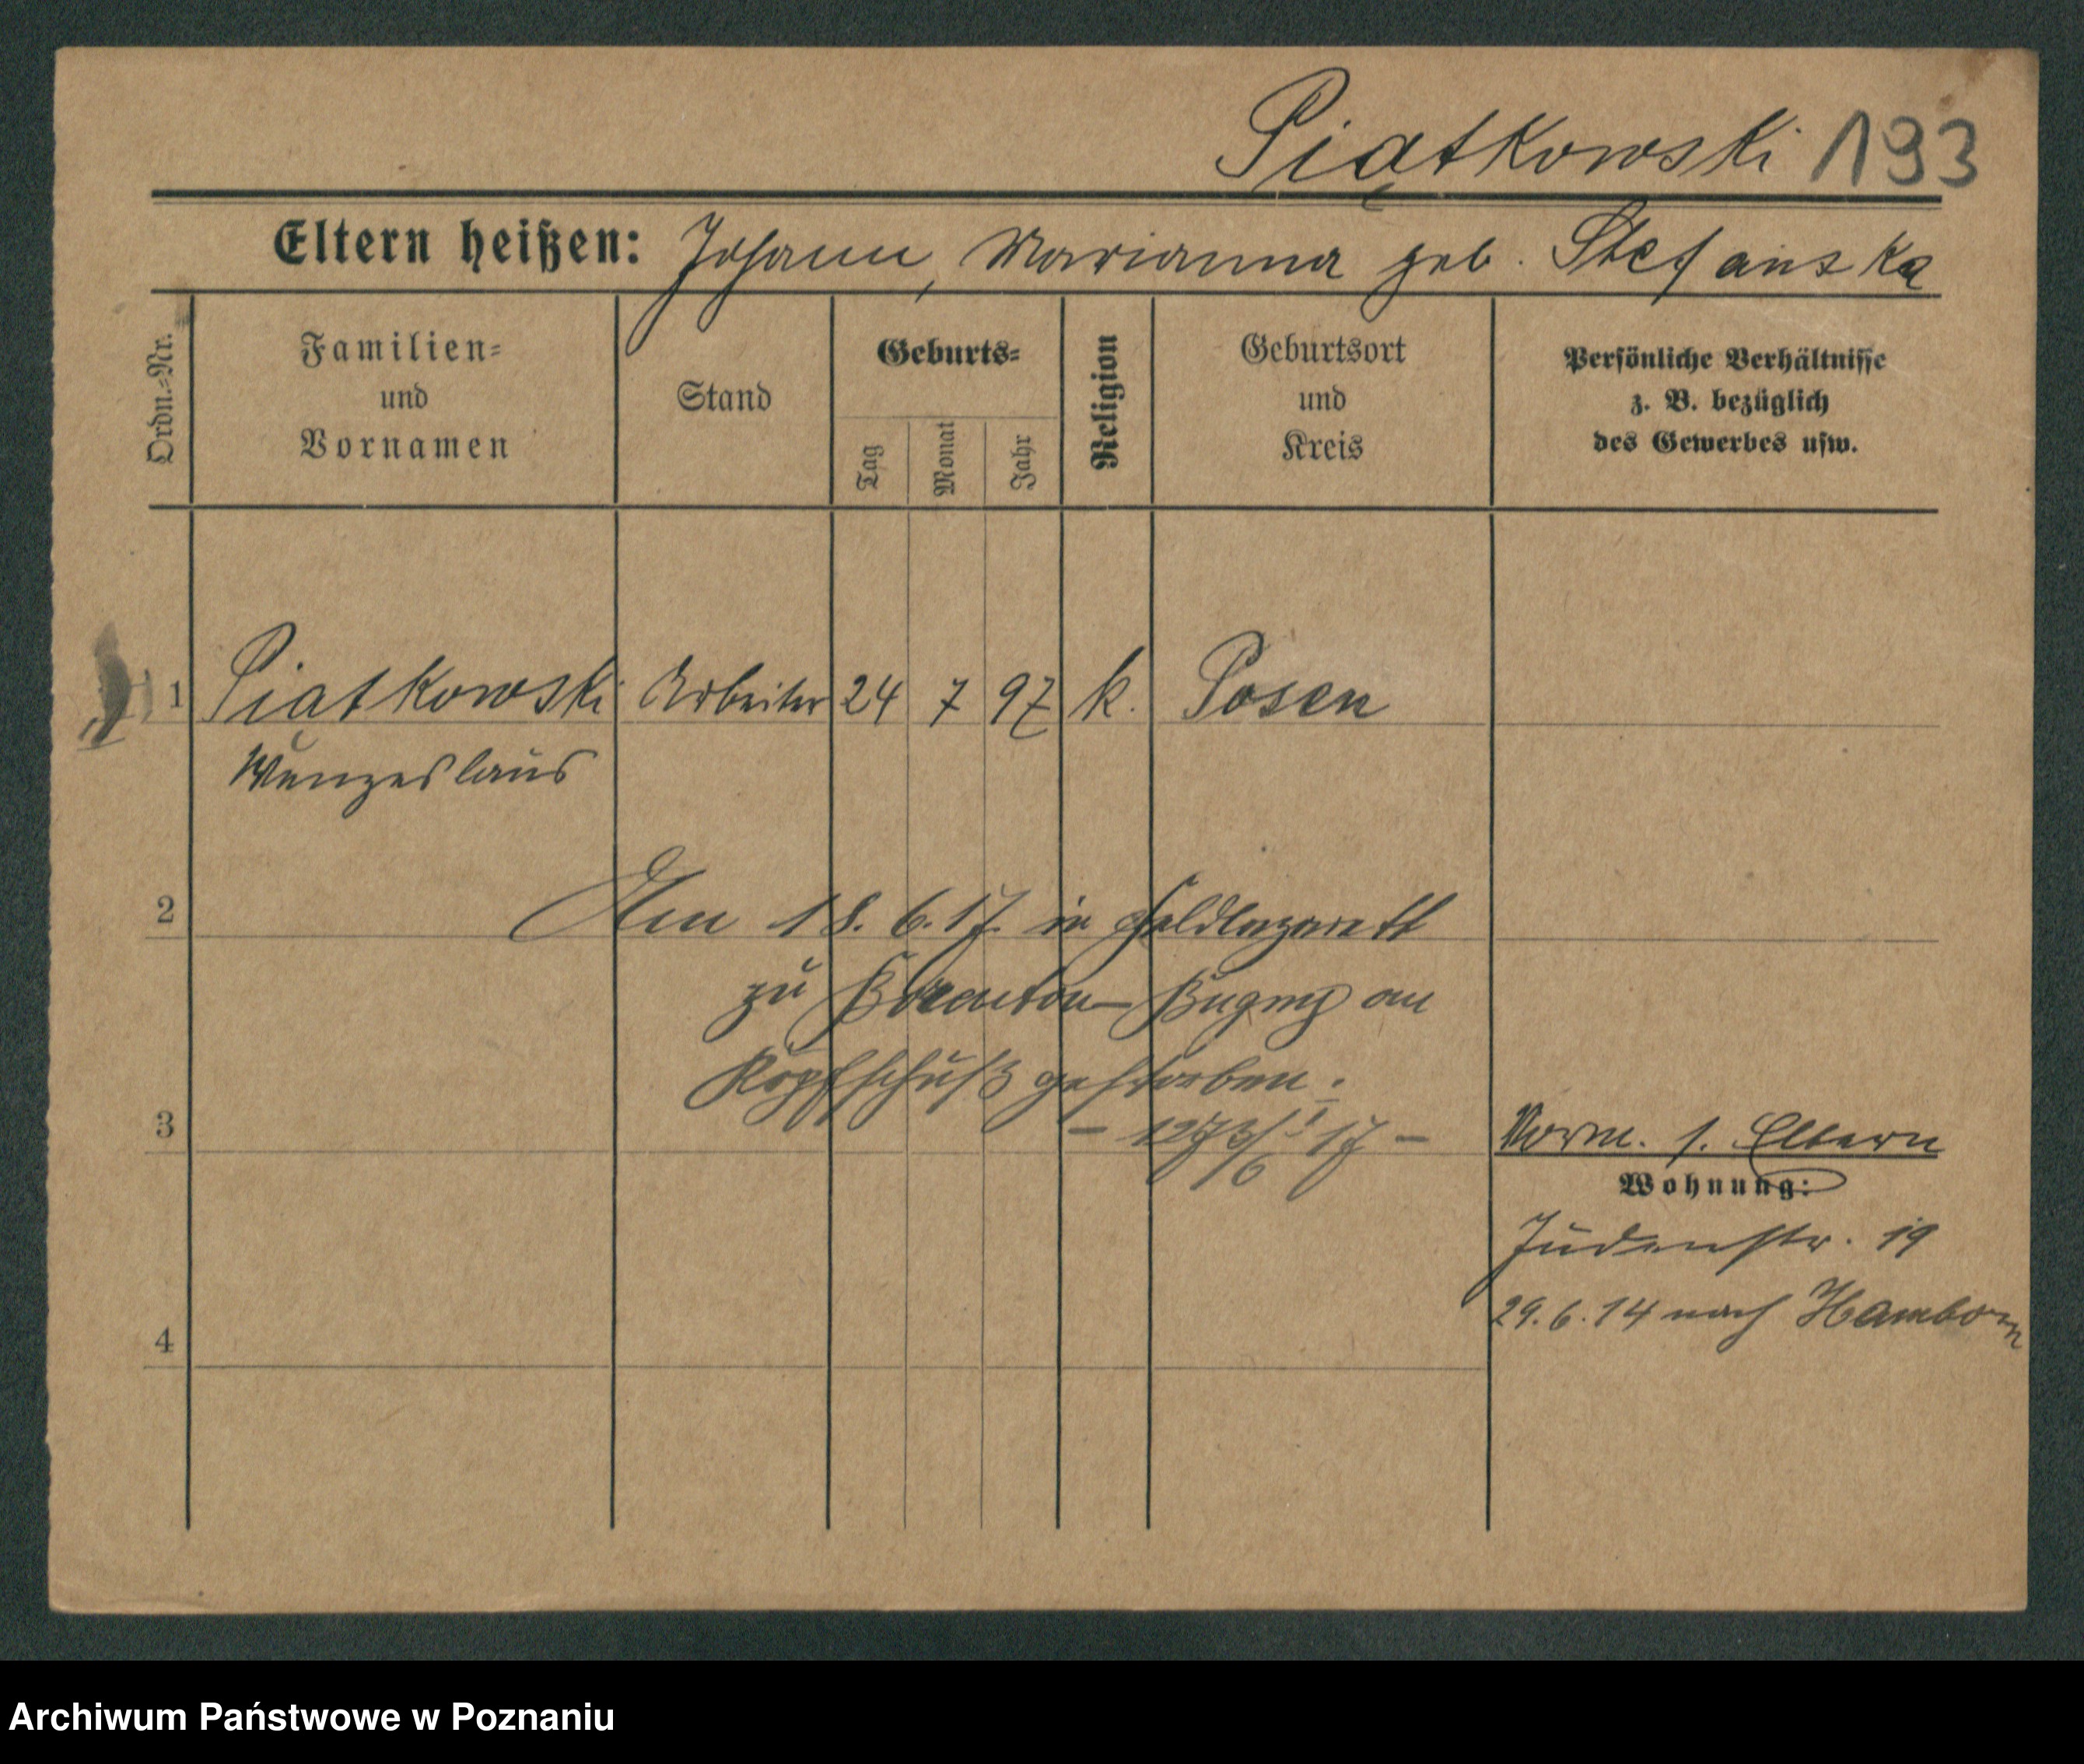 Piątkowski 193
Eltern heißen: Johann, Marianna geb. Stefanska
Ordn.-Nr.
Familien-
und
Vornamen
Stand
Geburts-
Tag
Monat
Jahr
Religion
Geburtsort
und
Kreis
Persönliche Verhältnisse
z. B. bezüglich
des Gewerbes usw.
1 Piatkowski Arbeiter 24 7 97 k. Posen
Wenzeslaus
2 Am 18. 6. 17. in Feldlazarett
zu Bugny an
Kopfschuß gestorben.
3
Vorm. s. Eltern
Wohnung:
Judenstr. 19
29. 6. 14 nach Hamborn
4
Archiwum Państwowe w Poznaniu